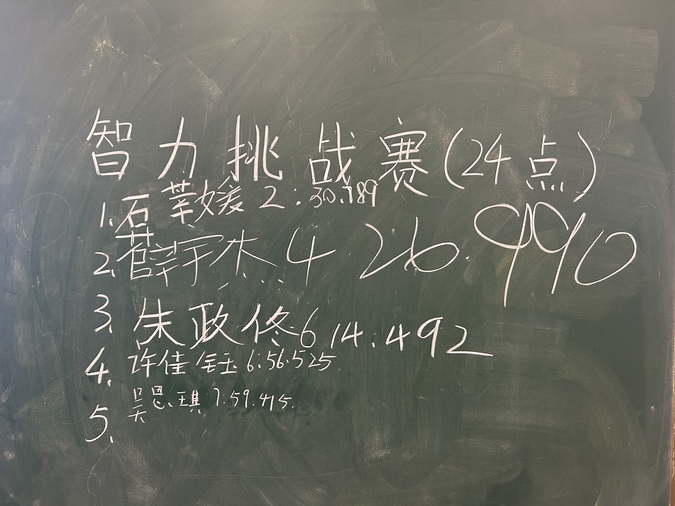 智力挑战赛(24点)
1.石莘媛 2:30.789
2.薛宇杰 4 26.990
3.朱政佟 6 14.492
4.许佳钰 6:56.525
5.吴恩琪 7:59.415.